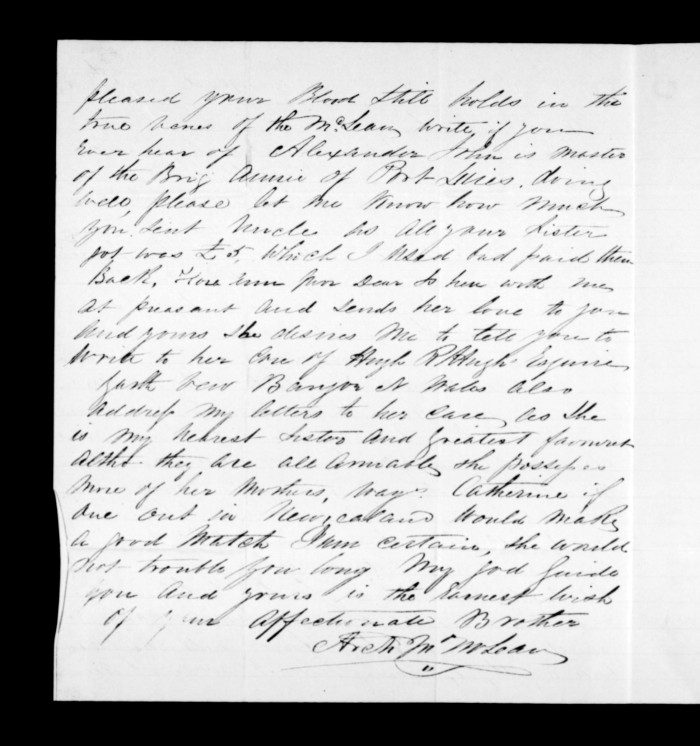 pleased your Blood still holds in the
true venes of the McLean, write if you
ever hear of Alexander John is master
of the Brig Annie of Port Luies. doing
well, please let me know how much
you sent Uncle as all your sister
got was £5, which I used had paid them
Back, Flora Ann poor Dear is hen with me
at preasant and sends her love to you
and yours she desires me to tell you to
write to her Care of Hugh Esquire
Garth vew Bangor N Wales also
address my letters to her care, as she
is my nearest sister and greatest favouret
altho they are all amiable, she possesses
more of her Mothers, ways. Catherine if
once out in Newzealand would make
a good match I am certain, she would
not trouble you long My god Guide
you and yours is the Earnest wish
of your affectionate Brother
Archd Mc McLean